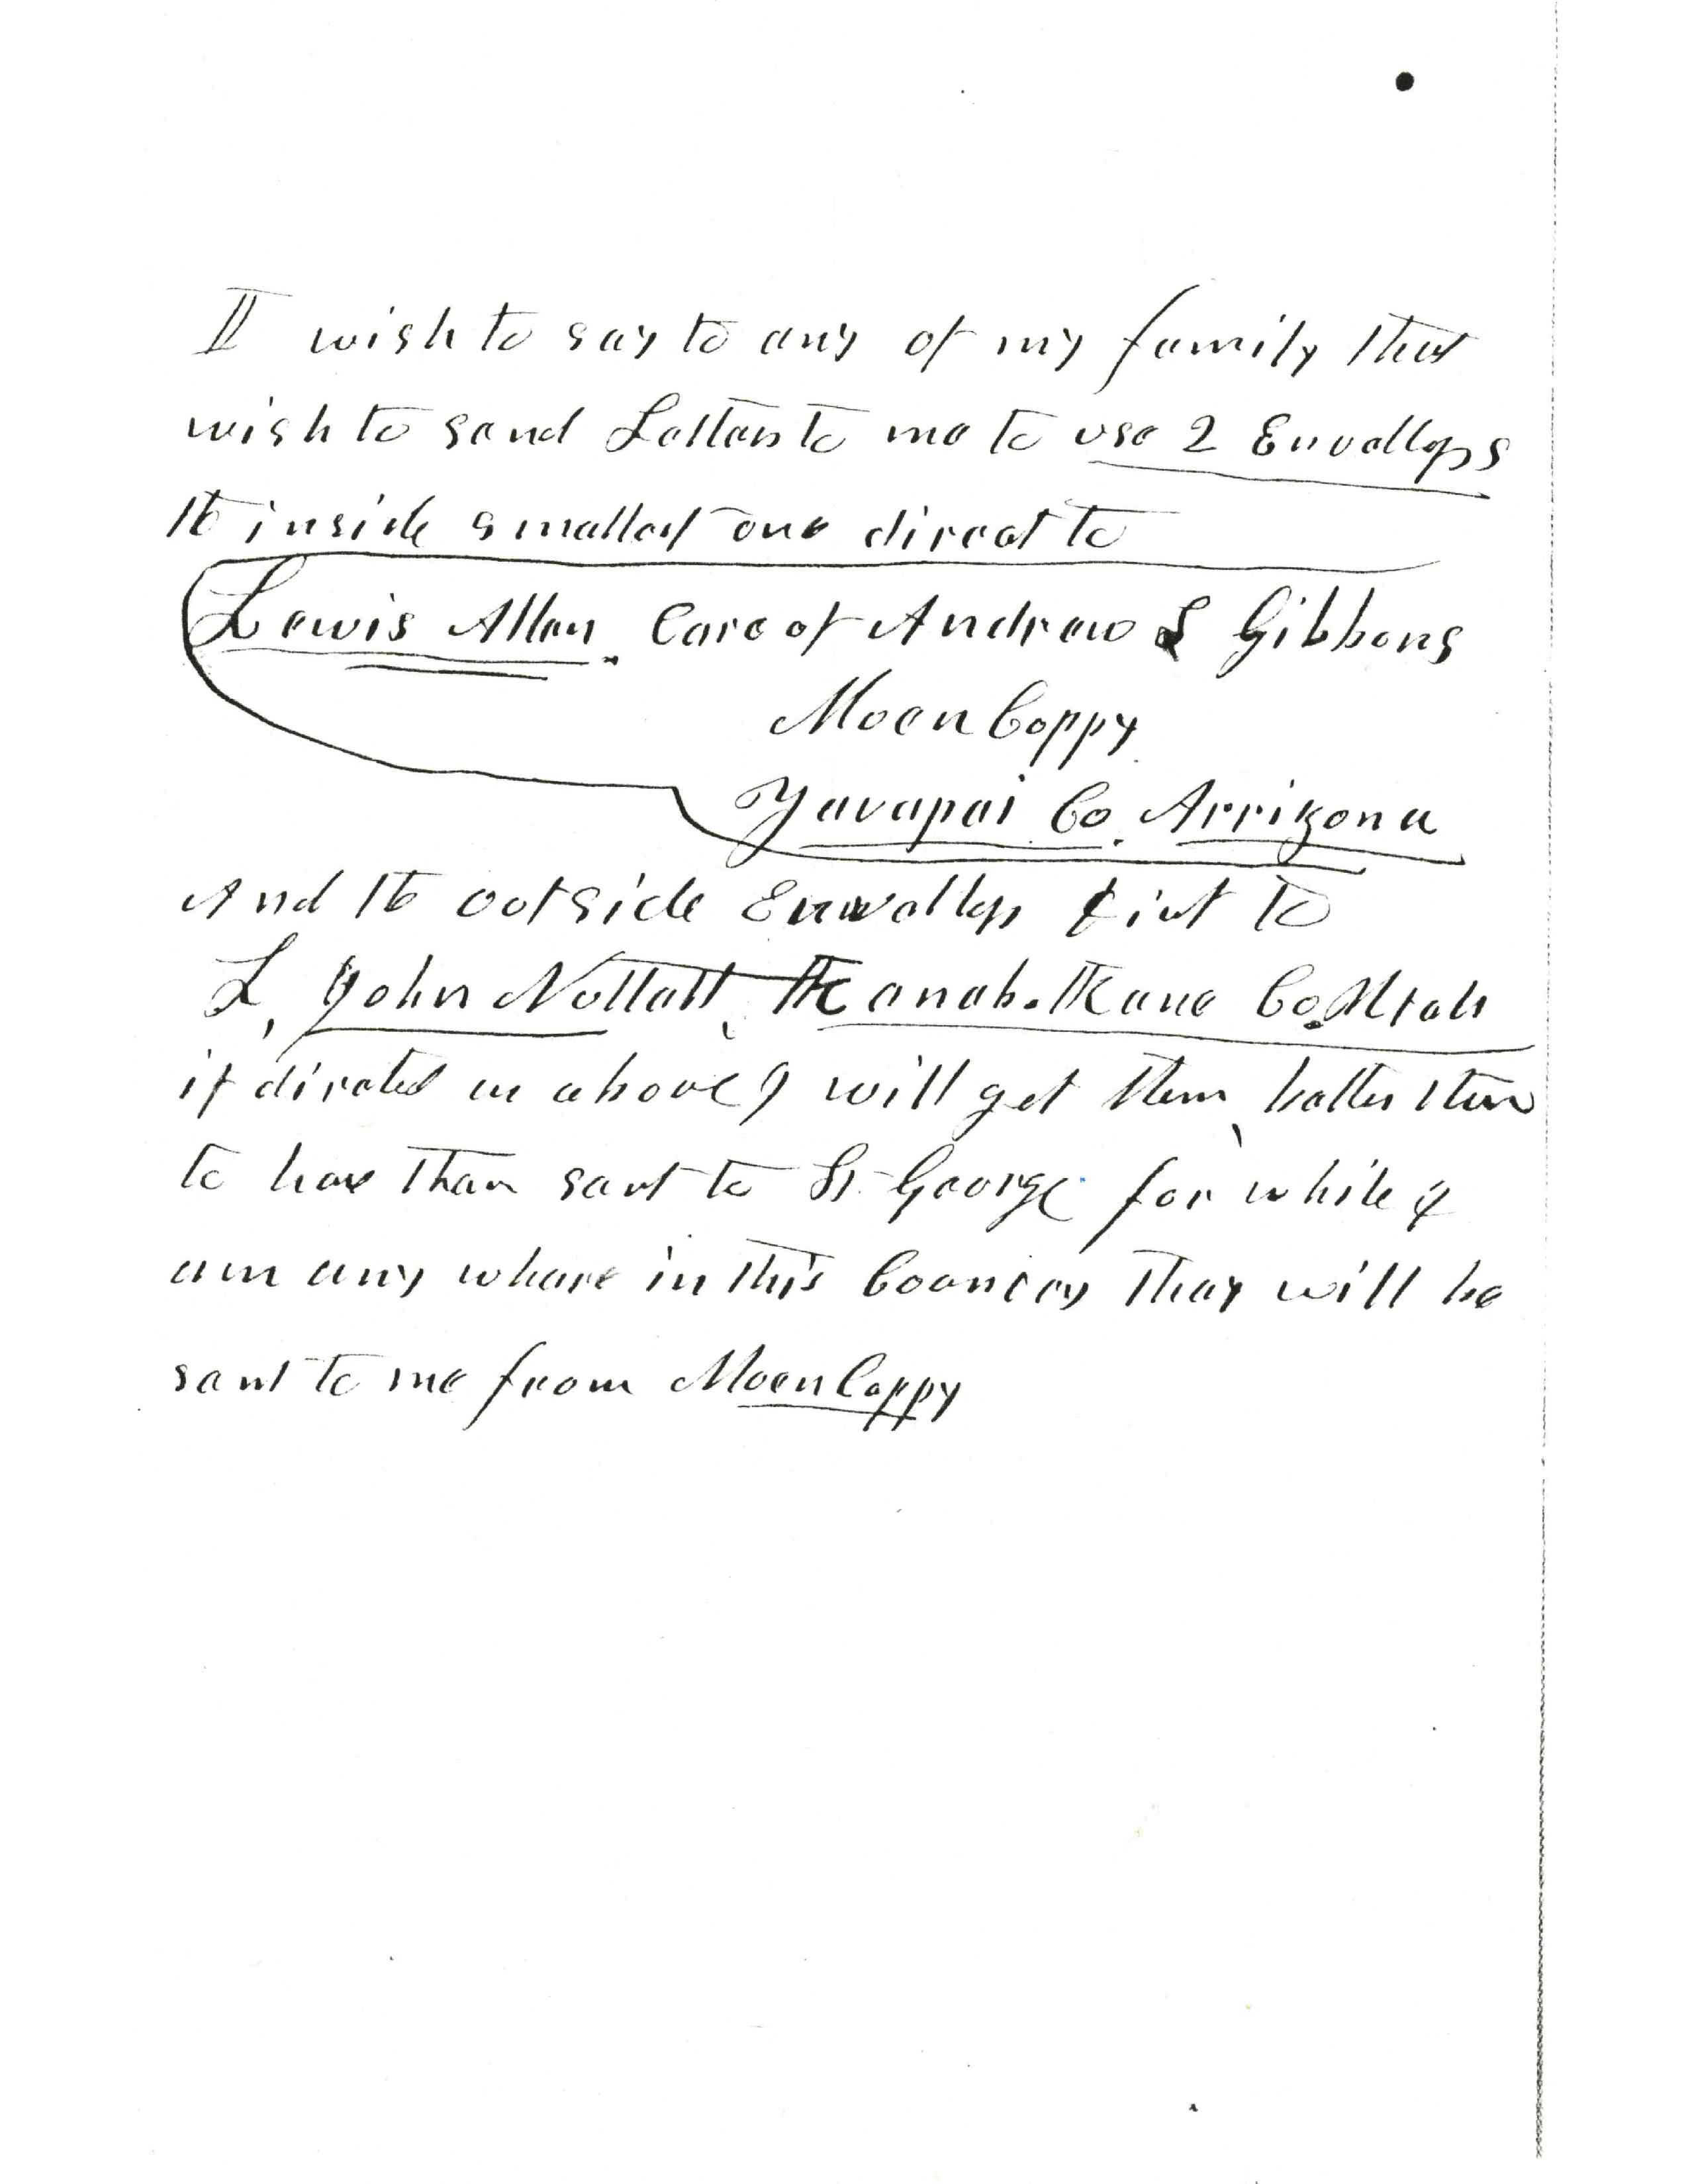 I wish to say to any of my family that
wish to send Letters to me to use 2 Envellops
the inside smallest one direct to
Lewis Allen. Care of Andrew S Gibbons
Moencoppy
Yavapai Co. Arrizona
And the outside Envellop to
L, John Nuttall, Kanab. Kane Co. Utah
if directed as above I will get them better then
to have them sent to St. George for while I
am any where in this Country they will be
sent to me from Moencoppy